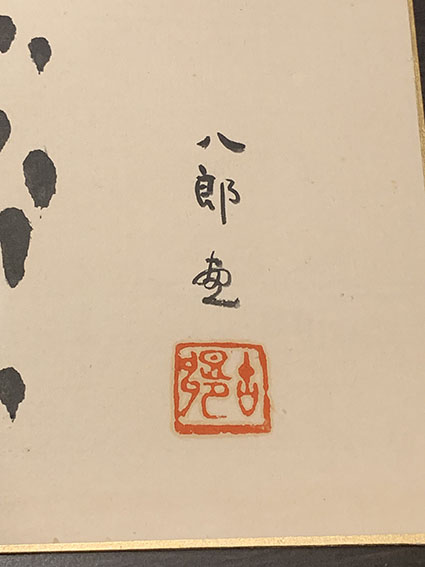 八郎画